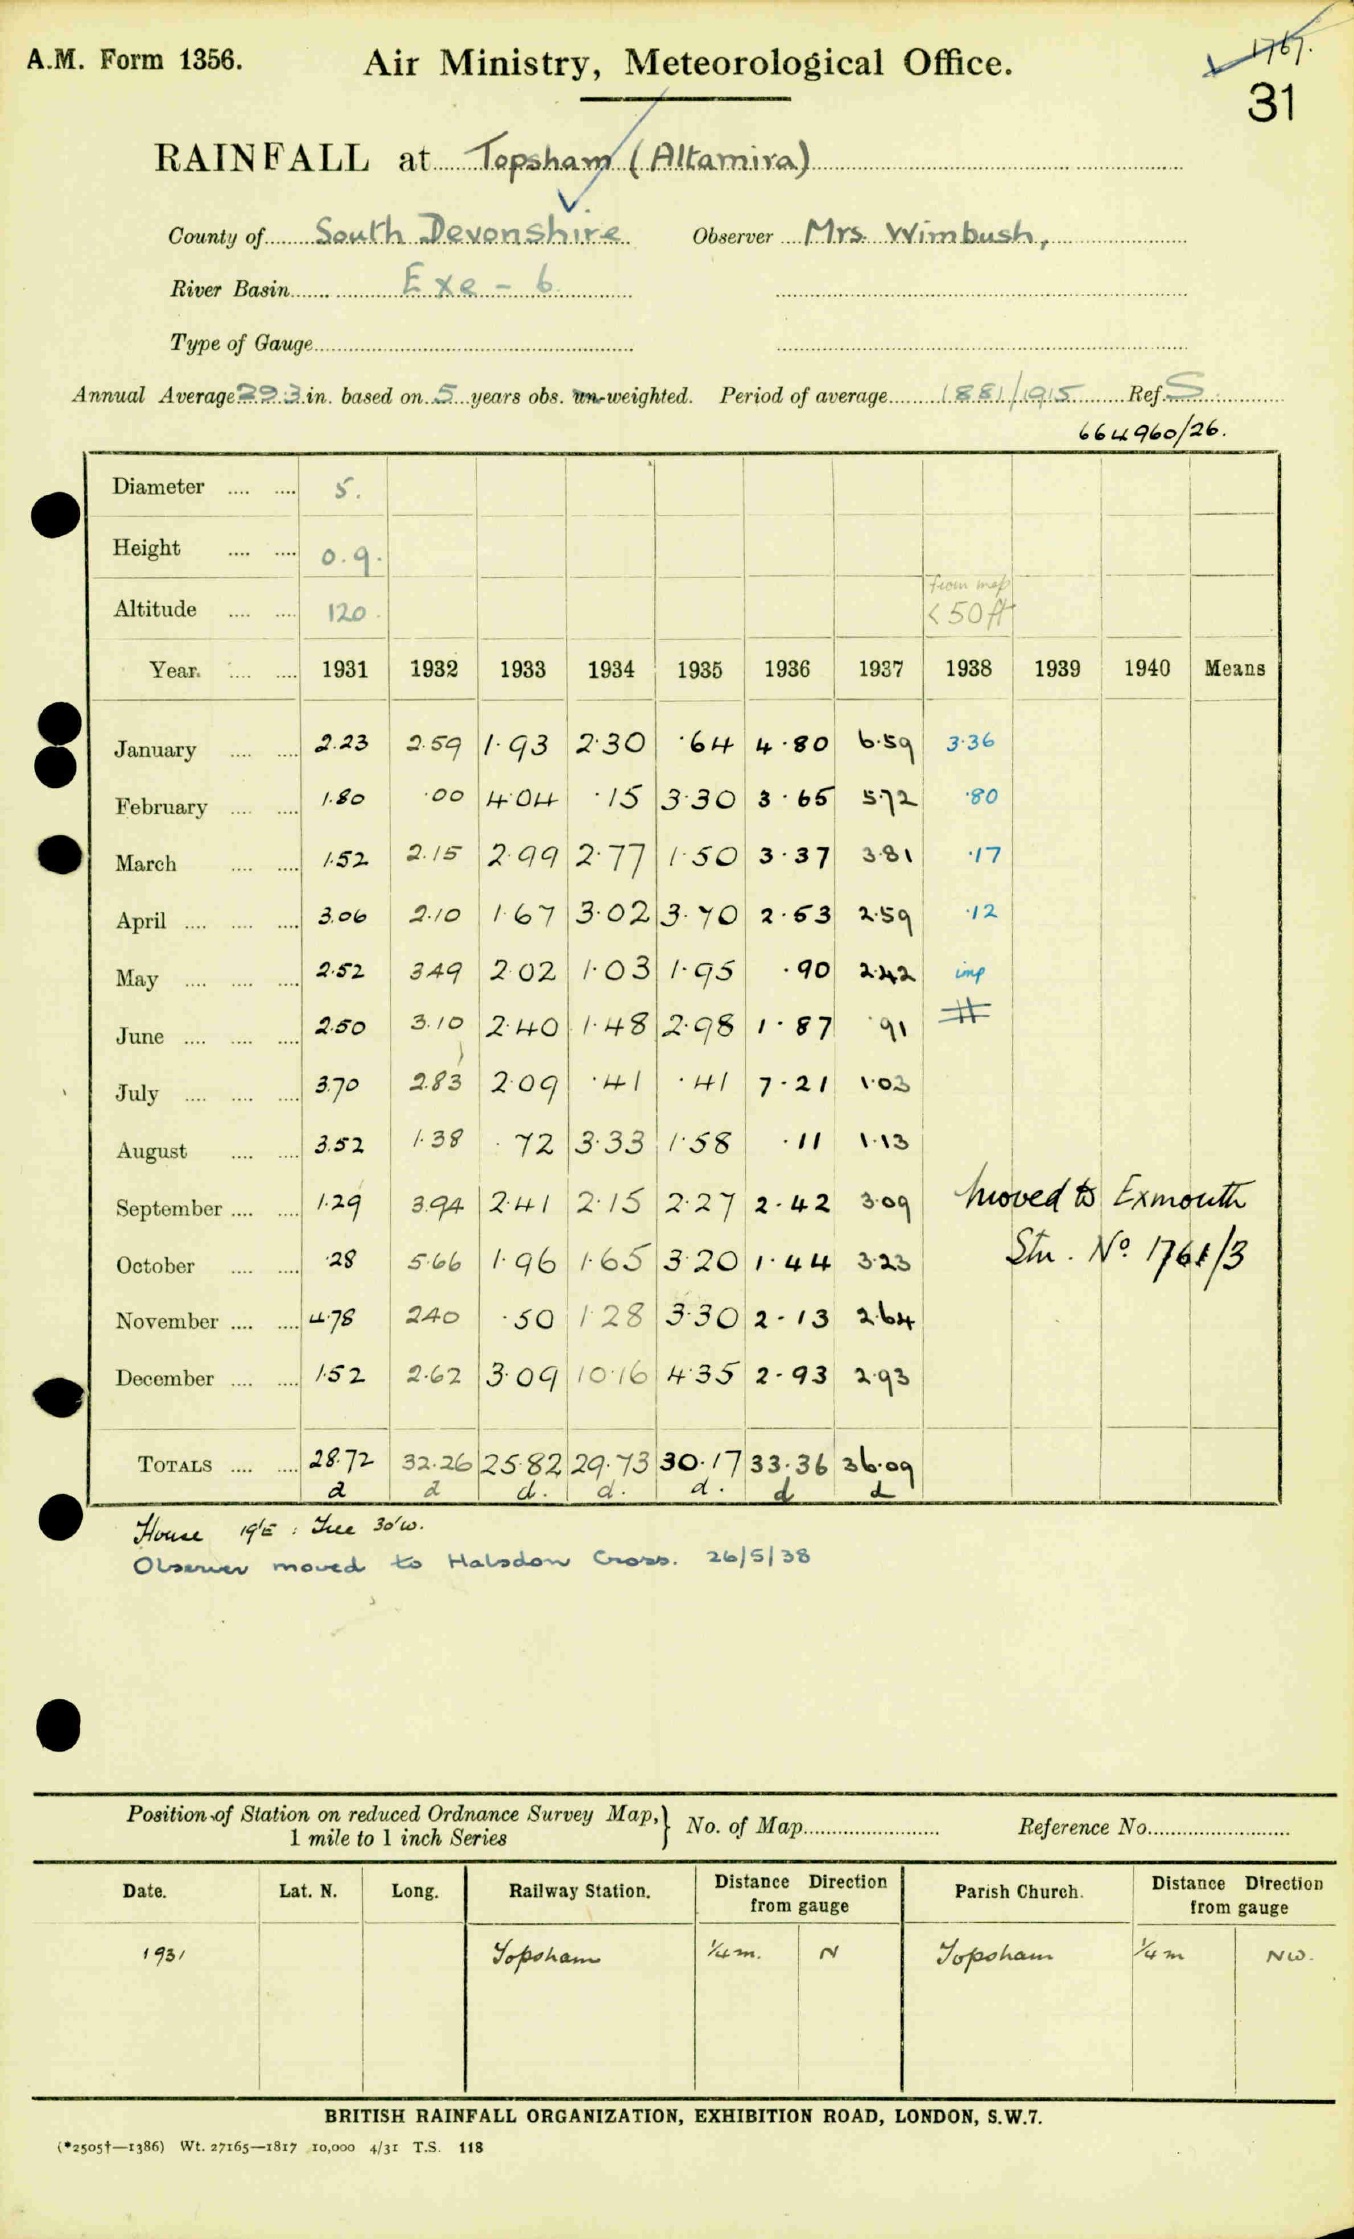 A.M. Form 1356.
Air Ministry, Meteorological Office.
1767.
31
RAINFALL at Topsham (Altamira)
County of South Devonshire Observer Mrs. Wimbush,
River Basin Exe - 6
Type of Gauge
Annual Average 29.3 in. based on 5 years obs. un-weighted. Period of average 1881/1915 Ref. S
664960/26.
Diameter .... .... 5.
Height .... .... 0.9.
from map
Altitude .... .... 120. <50ft
Year. .... .... 1931 1932 1933 1934 1935 1936 1937 1938 1939 1940 Means
January .... .... 2.23 2.59 1.93 2.30 .64 4.80 6.59 3.36
February .... .... 1.80 .00 4.04 .15 3.30 3.65 5.72 .80
March .... .... 1.52 2.15 2.99 2.77 1.50 3.37 3.81 .17
April .... .... .... 3.06 2.10 1.67 3.02 3.70 2.53 2.59 .12
May .... .... .... 2.52 3.49 2.02 1.03 1.95 .90 2.42 imp
June .... .... .... 2.50 3.10 2.40 1.48 2.98 1.87 .91
July .... .... .... 3.70 2.83 2.09 .41 .41 7.21 1.03
August .... .... 3.52 1.38 .72 3.33 1.58 .11 1.13
September .... .... 1.29 3.94 2.41 2.15 2.27 2.42 3.09 Moved to Exmouth
October .... .... .28 5.66 1.96 1.65 3.20 1.44 3.23 Stn. No. 1761/3
November .... .... 4.78 2.40 .50 1.28 3.30 2.13 2.64
December .... .... 1.52 2.62 3.09 10.16 4.35 2.93 2.93
TOTALS .... .... 28.72 32.26 25.82 29.73 30.17 33.36 36.09
d d d. d. d. d d
House 19'E : Tree 30'W.
Observer moved to Halsdon Cross. 26/5/38
Position of Station on reduced Ordnance Survey Map, 1 mile to 1 inch Series } No. of Map Reference No.
Date. Lat. N. Long. Railway Station. Distance Direction from gauge Parish Church. Distance Direction from gauge
1931 Topsham ¼m. N Topsham ¼m NW.
BRITISH RAINFALL ORGANIZATION, EXHIBITION ROAD, LONDON, S.W.7.
(*2505†—1386) Wt. 27165—1817 10,000 4/31 T.S. 118